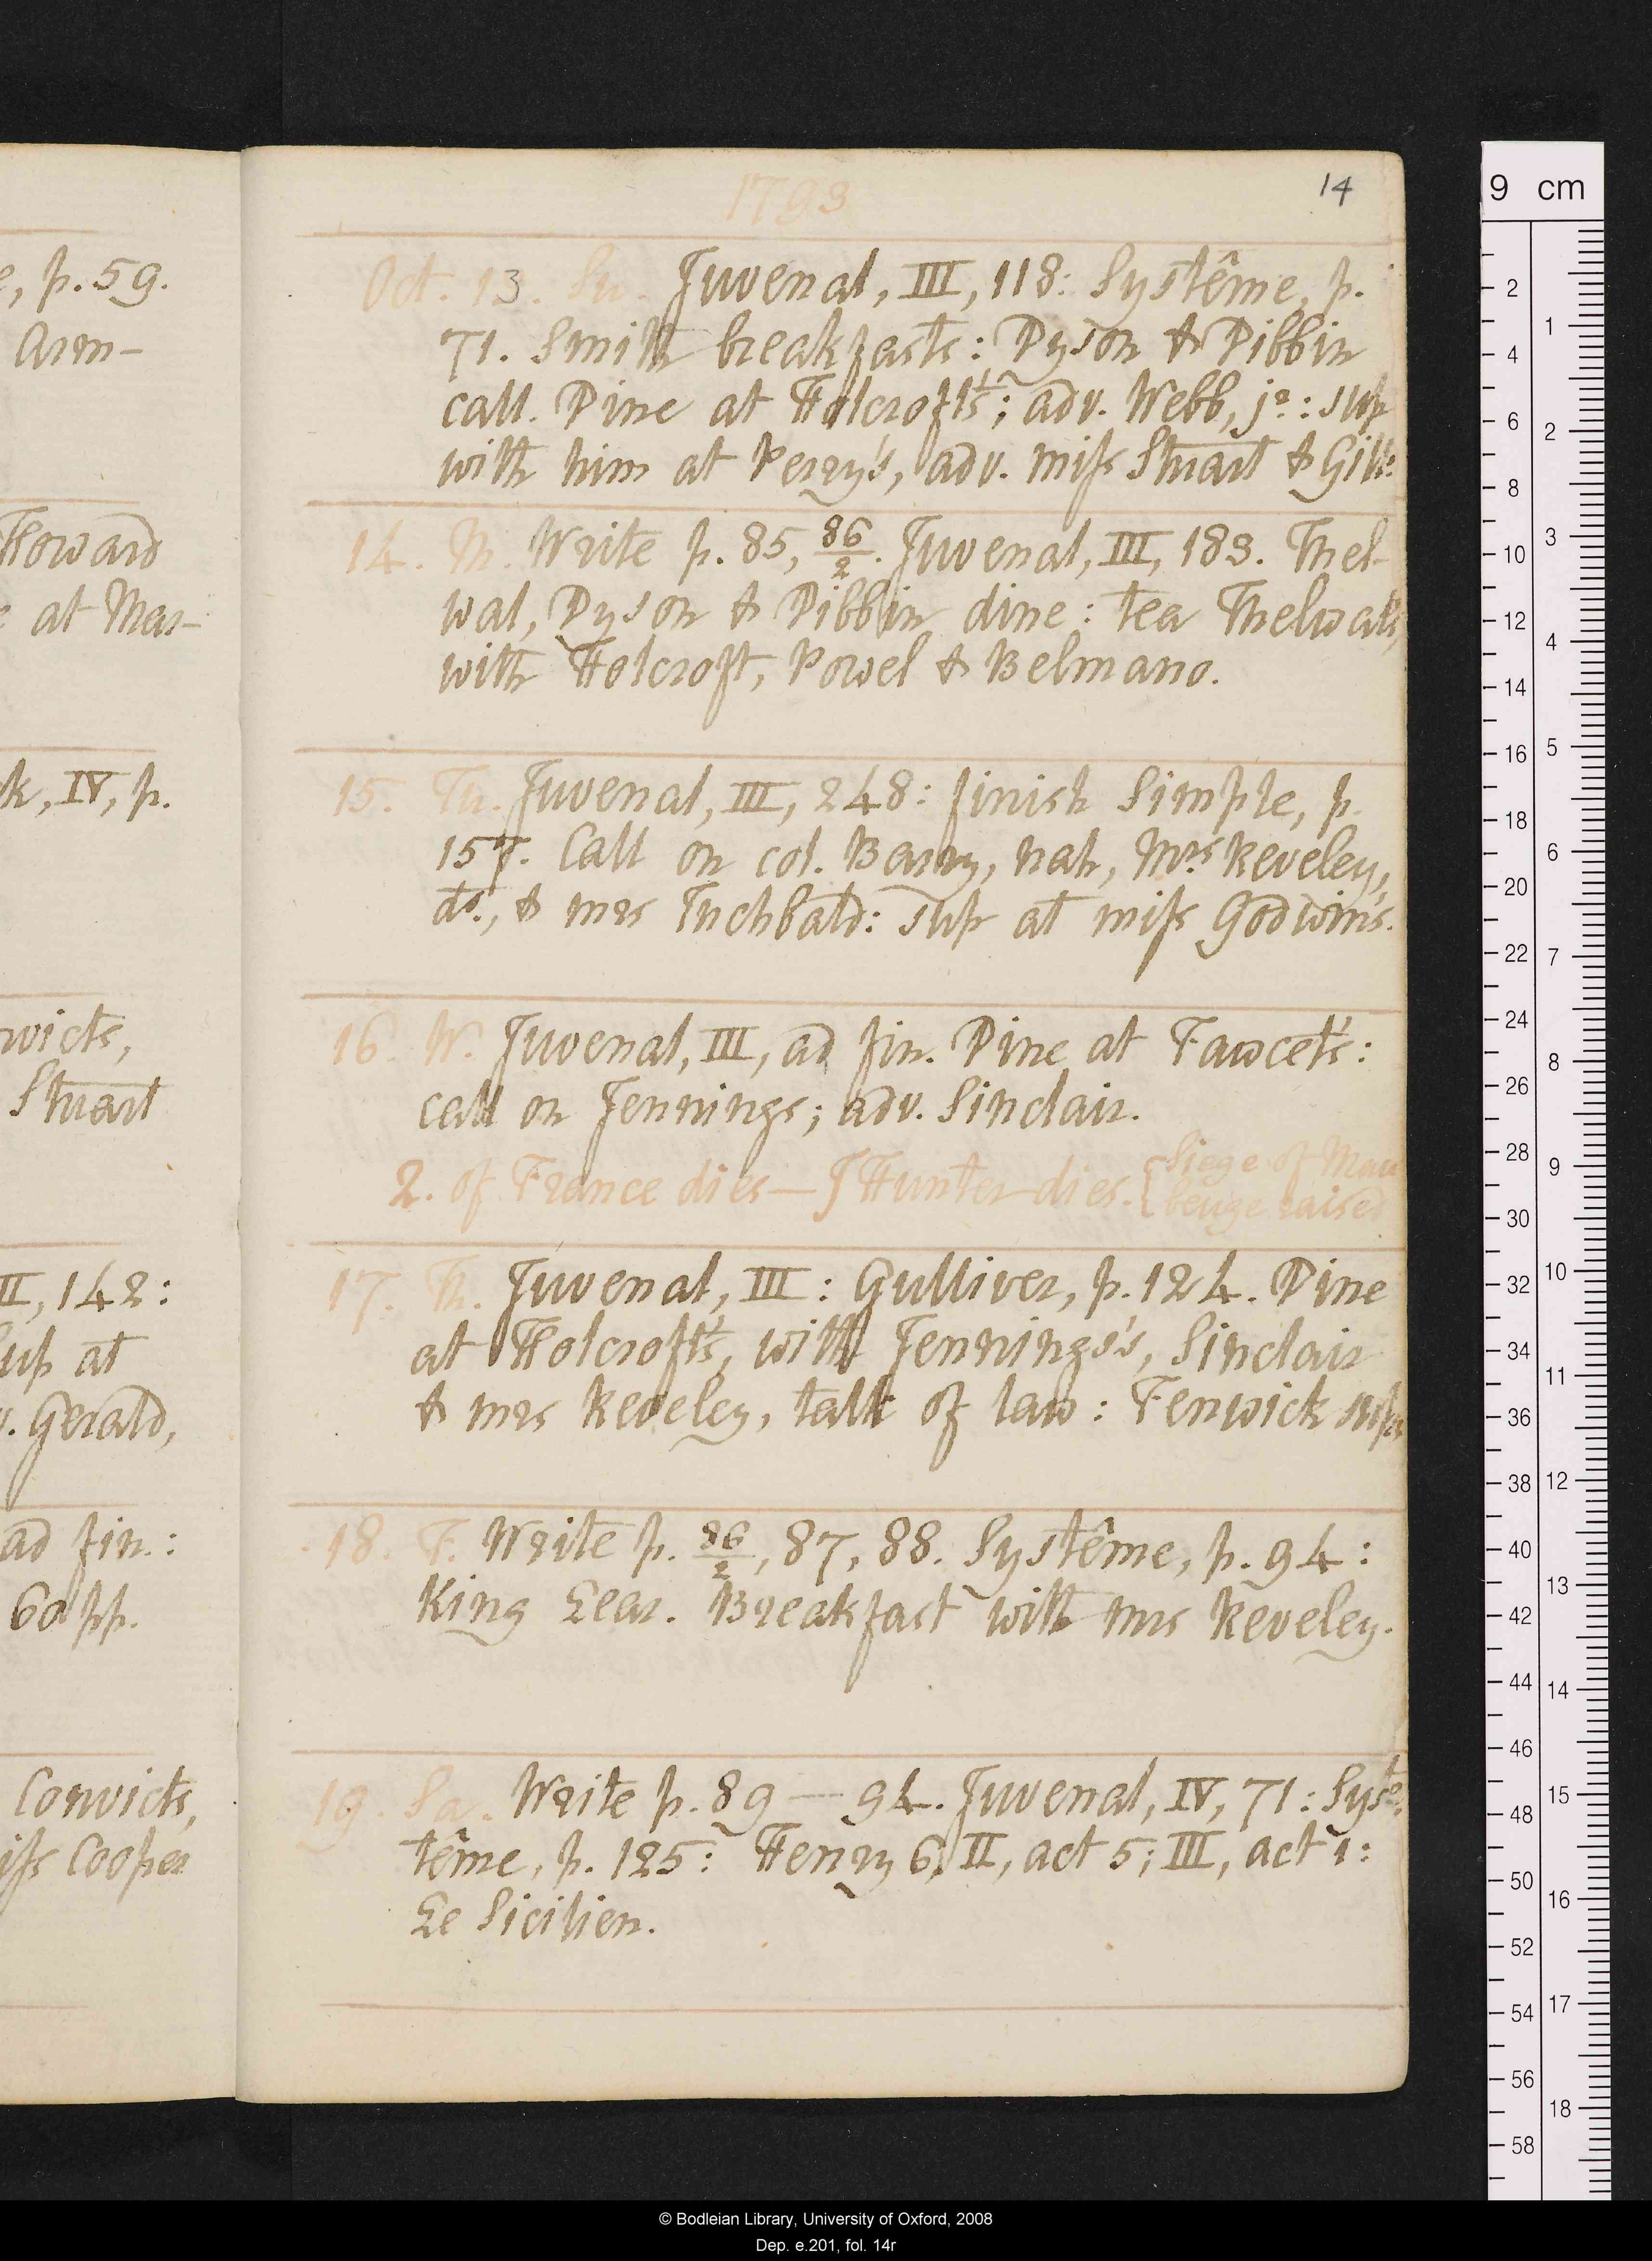 e, p. 59.
Arm-
Howard
e at Mar-
k, IV, p.
nvicts,
Stuart
II, 142:
Sup at
v. Gerald,
ad fin.:
60 pp.
Convicts,
iss Cooper
1793
14
Oct. 13. Su. Juvenal, III, 118: Systême, p.
71. Smith breakfasts: Dyson & Dibbin
call. Dine at Holcroft's; adv. Webb, jº: sup
with him at Perry's, adv. miss Stuart &
14. M. Write p. 85, 86/2. Juvenal, III, 183. Thel-
wal, Dyson & Dibbin dine: tea Thelwal's,
with Holcroft, Powel & Belmano.
15. Tu. Juvenal, III, 248: finish Simple, p.
157. Call on col. Barry, nah, Mrs Reveley,
do., & mrs Inchbald: sup at miss Godwin's.
16. W. Juvenal, III, ad fin. Dine at Fawcet's:
call on Jennings; adv. Sinclair.
Q. of France dies—J Hunter dies. {Siege of Mau
beuge raised
17. Th. Juvenal, III: Gulliver, p. 124. Dine
at Holcroft's, with Jennings's, Sinclair
& mrs Reveley, talk of law: Fenwick sups
18. F. Write p. 86/2, 87, 88. Systême, p. 94:
King Lear. Breakfast with mrs Reveley.
19. Sa. Write p. 89 — 94. Juvenal, IV, 71: Sys-
tême, p. 125: Henry 6, II, act 5; III, act 1:
Le Sicilien.
9 cm
2
4
6
8
10
12
14
16
18
20
22
24
26
28
30
32
34
36
38
40
42
44
46
48
50
52
54
56
58
1
2
3
4
5
6
7
8
9
10
11
12
13
14
15
16
17
18
© Bodleian Library, University of Oxford, 2008
Dep. e.201, fol. 14r